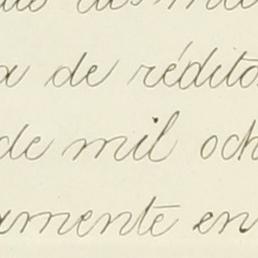 a de rédito
de mil och
amente en